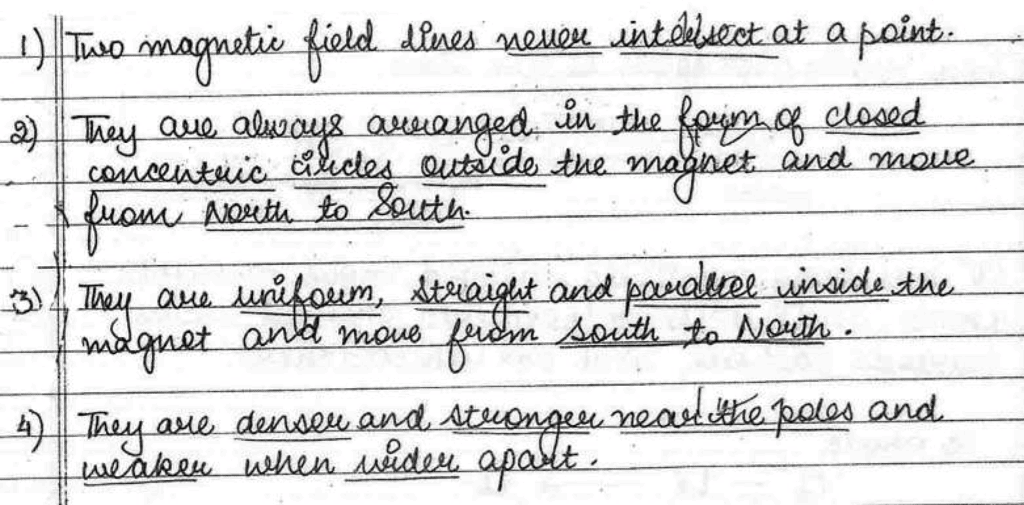 1) Two magnetic field lines never intersect at a point.
2) They are always arranged in the form of closed
concentric circles outside the magnet and move
from North to South.
3) They are uniform, straight and parallel inside the
magnet and move from South to North.
4) They are denser and stronger near the poles and
weaker when wider apart.